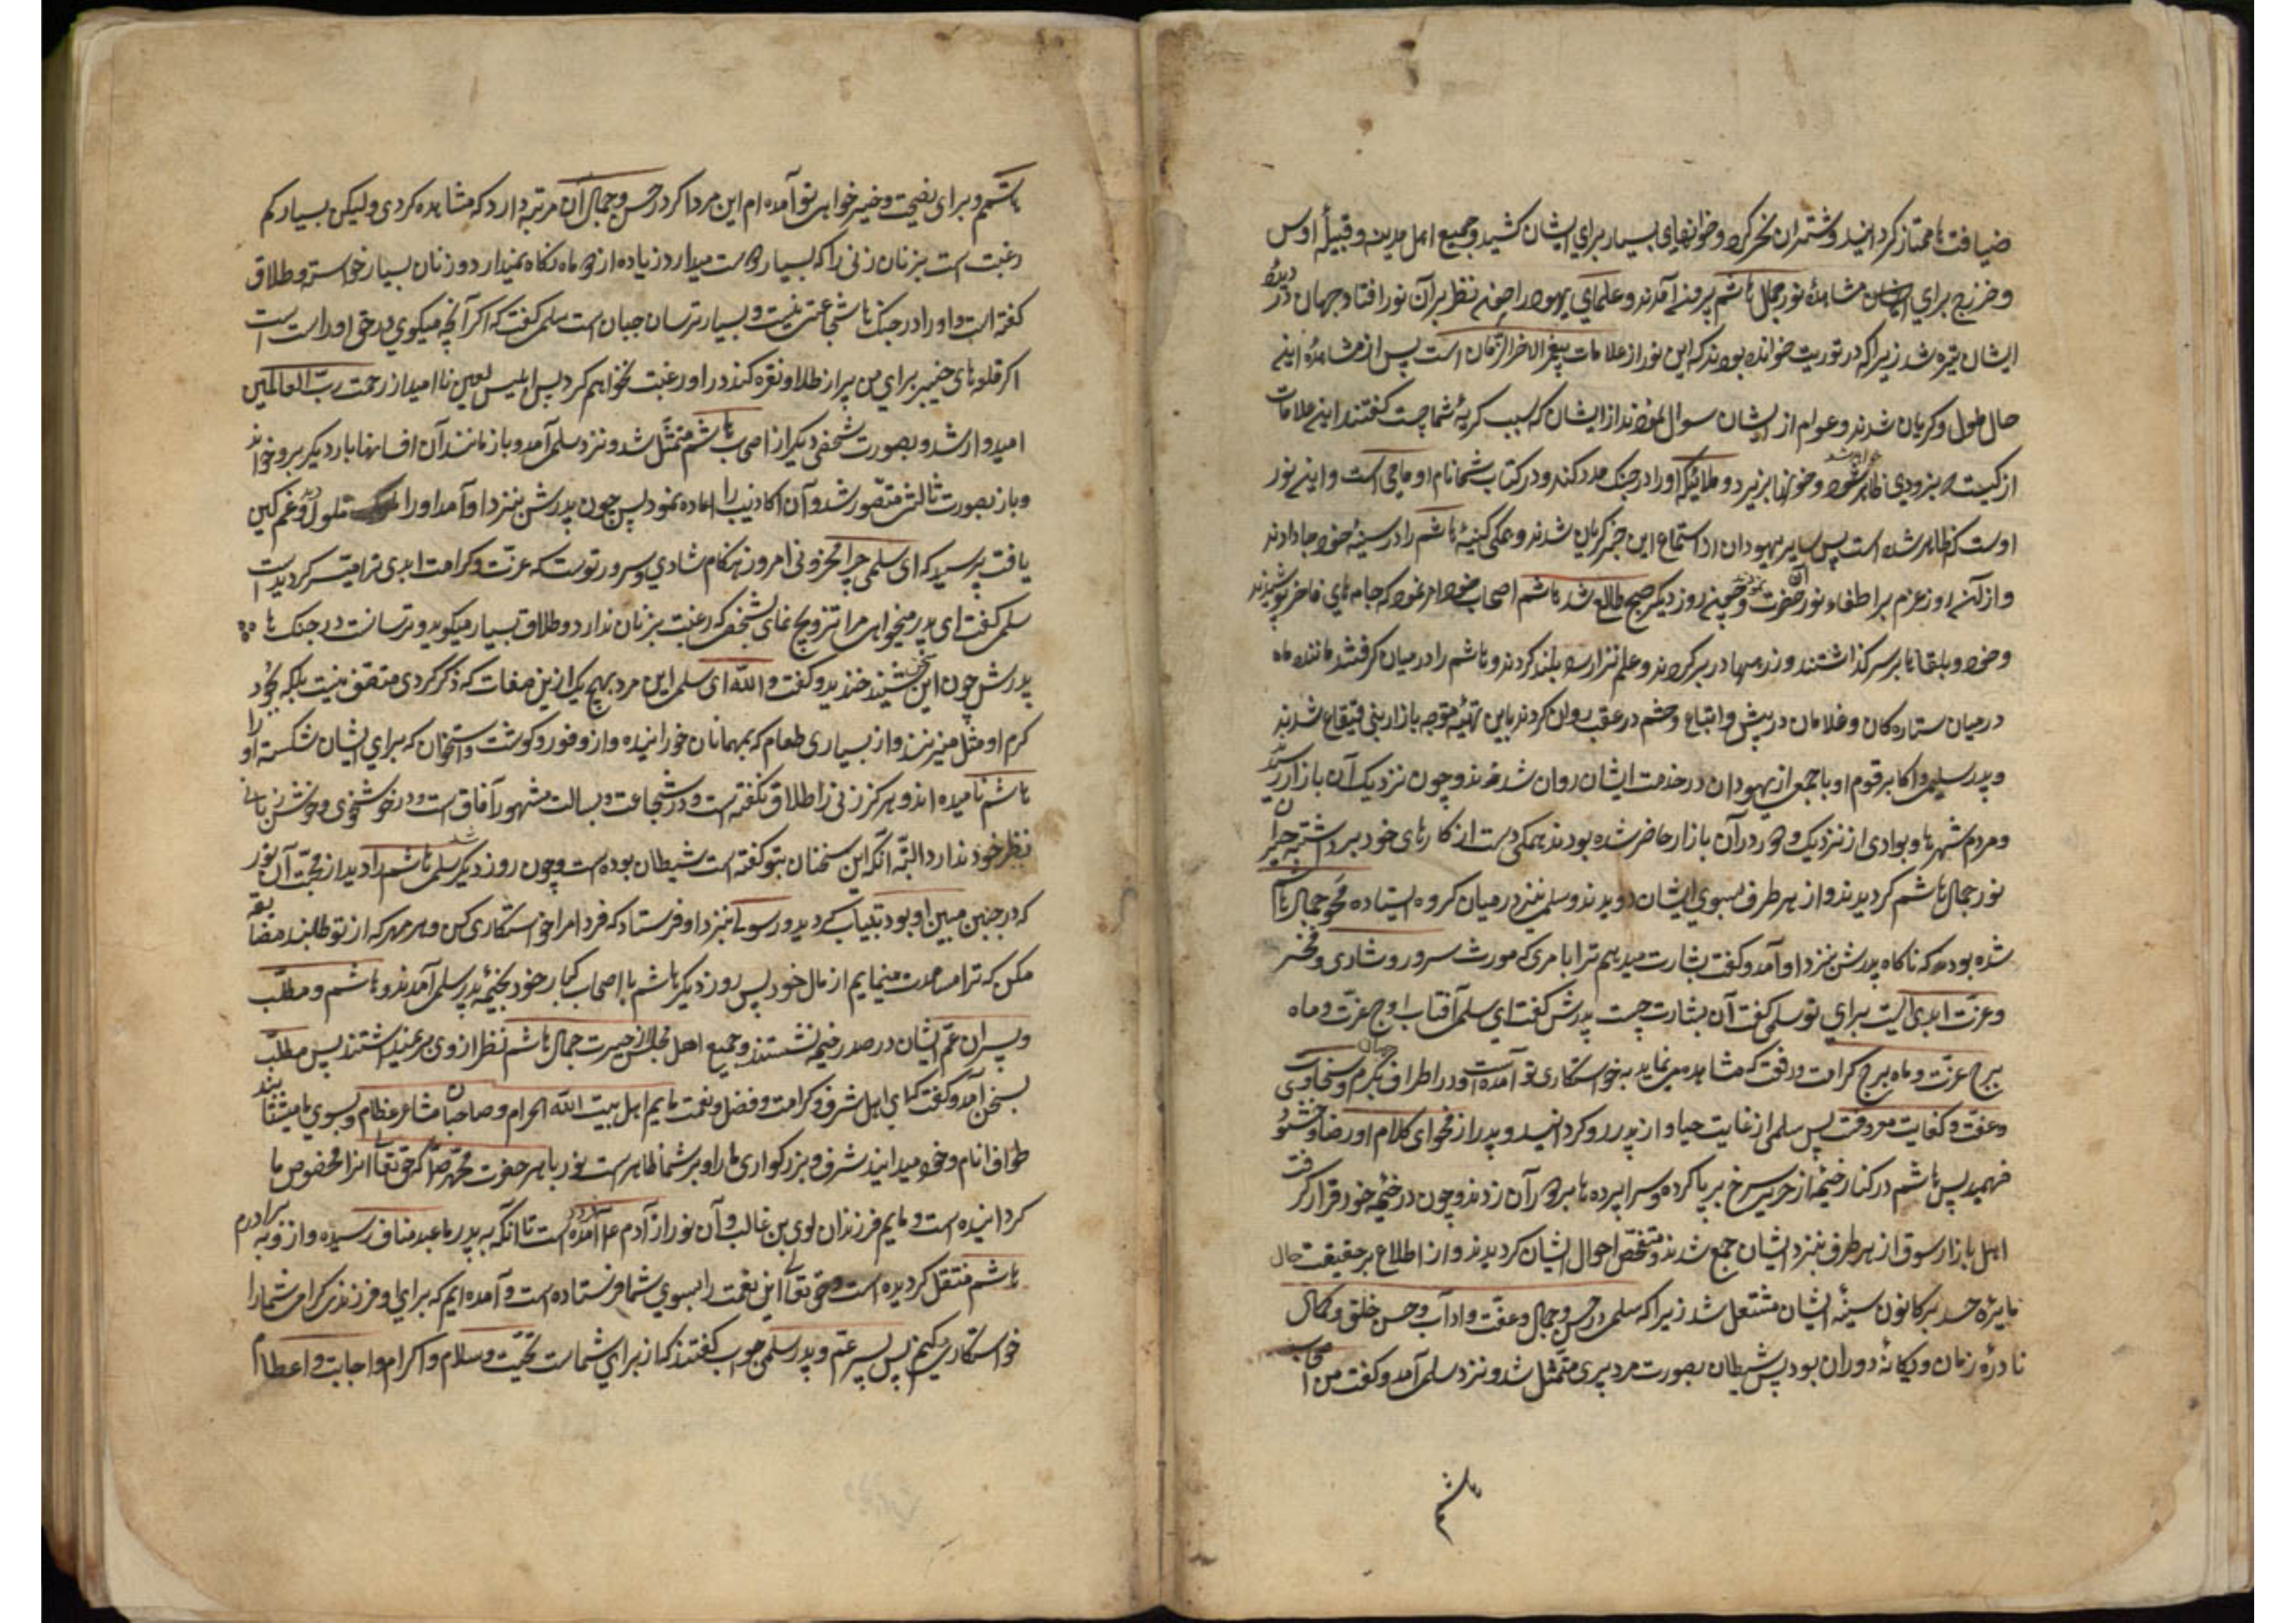 ضیافت ها ممتاز کردانید و شتران نحر کرد و خوانهای بسیار برای ایشان کشید و جمیع اهل مدینه و قبیلهٔ اوس
و خزرج برای مشاهدهٔ نور جمال هاشم بیرون آمدند و علمای یهود را چون نظر بر آن نور افتاد جهان در دیدهٔ
ایشان تیره شد زیرا که در توریت خوانده بودند که این نور از علامات پیغمبر آخر الزمان است پس از مشاهدهٔ این
حال ملول و کریان شدند و عوام از ایشان سوال نمودند از ایشان که سبب کریهٔ شما چیست کفتند این علامات
از کیست که بزودی ظاهر خواهد شد و خونها بریزد و ملائکه او را در جنک مدد کنند و در کتاب شما نام او ماحی است و این نور
اوست که ظاهر شده است پس سایر یهودان از استماع این خبر کریان شدند و همکی کینهٔ هاشم را در سینهٔ خود جا دادند
و از آن روز عزم بر اطفاء نور آن حضرت نمودند و چون روز دیکر صبح طالع شد هاشم اصحاب خود را امر نمود که جامه های فاخر پوشیدند
و خودها بر سر کذاشتند و زره‌ها در بر کردند و علم نزار را بلند کردند و هاشم را در میان کرفتند مانند ماه
در میان ستاره کان و غلامان در پیش و اتباع و حشم در عقب روان کردند باین تهیّه متوجه بازار بنی قینقاع شدند
و پدر سلمی و اکابر قوم او با جمعی از یهودان در خدمت ایشان روان شدند و چون نزدیک آن بازار رسیدند
و مردم شهرها و بوادی از نزدیک و دور در آن بازار حاضر شده بودند همکی دست از کارهای خود برداشته حیران
نور جمال هاشم کردیدند و از هر طرف بسوی ایشان دویدند و سلمی نیز در میان کروه ایستاده محو جمال هاشم
شده بود که ناکاه پدرش نزد او آمد و کفت بشارت میدهم ترا بامری که مورث سرور و شادی و فخر
و عزت ابدی است برای تو سلمی کفت آن بشارت چیست پدرش کفت ای سلمی آفتاب اوج عزّت و ماه
برج عزّت و ماه برج کرامت و رفعت که مشاهده مینمائی به خواستکاری تو آمده است و در اطراف جهان بکرم و سخاوت
و عفّت و کفایت معروفست پس سلمی از غایت حیا و از پدر رو کردانید و پدر از فحوای کلام او رضا و خوشنودی
فهمید پس هاشم در کنار خیمهٔ از حریر سرخ برپا کرده و سراپرده ها بر دور آن زدند و چون در خیمه خود قرار کرفت
اهل بازار سوق از هر طرف نزد ایشان جمع شدند و متفحّص احوال ایشان کردیدند و از اطلاع بر حقیقت حال
نایرهٔ حسد بر کانون سینهٔ ایشان مشتعل شد زیرا که سلمی در حسن و جمال و عفّت و اداب و حسن خلق و کمال
نادرهٔ زمان و یکانهٔ دوران بود پس شیطان بصورت مرد پیری متمثّل شد و نزد سلمی آمد و کفت من از اصحاب
هاشم
هاشمم و برای نصیحت و خیر خواهی تو آمده ام این مرد اکر در حسن و جمال آن مرتبه دارد که مشاهده کردی ولیکن بسیار کم
رغبت است بزنان زنی را که بسیار دوست میدارد زیاده از دو ماه نکاه نمیدارد و زنان بسیار خواسته و طلاق
کفته است و او را در جنک ها شجاعتی نیست و بسیار ترسان و جبان است سلمی کفت که اکر آنچه میکوی در حق او راست است
اکر قلعه های خیبر برای من پر از طلا و نقره کند در او رغبت نخواهم کرد پس ابلیس لعین نا امید از رحمت ربّ العالمین
امیدوار شد و بصورت شخصی دیکر از اصحاب هاشم متمثّل شد و نزد سلمی آمد و باز مانند آن افسانها بار دیکر برو خواند
و باز بصورت ثالثی متصّور شد و آن اکاذیب را اعاده نمود پس چون پدرش بنزد او آمد او را ملول و غم کین
یافت پرسید که ای سلمی چرا محزونی امروز هنکام شادی و سرور توست که عزّت و کرامت ابدی ترا میسّر کردیده است
سلمی کفت ای پدر میخواهی مرا تزویج نمای بشخصی که رغبت بزنان ندارد و طلاق بسیار میکوید و ترسانست در جنک ها
پدرش چون این سخن شنید خندید و کفت والله ای سلمی این مرد بهیچ یک از این صفات که ذکر کردی متصف نیست بلکه بجود
کرم او مثل میزنند و از بسیاری طعام که بمهمانان خورانیده و از وفور کوشت و استخوان که برای ایشان شکسته او را
هاشم نامیده اند و هرکز زنی را طلاق نکفته است و در شجاعت و بسالت مشهور آفاق است و در خوشخوی و خوش زبانی
نظر خود ندارد البتّه آنکه این سخنان بتو کفته است شیطان بوده است و چون روز دیکر شد سلمی هاشم را دید از محبّت آن نور
که در جبین مبین او بود بیتاب کردید و رسولی بنزد او فرستاد که فردا مرا خواستکاری کن و هر مهر که از تو طلبند مضایقه
مکن که ترا مساعدت مینمایم از مال خود پس روز دیکر هاشم با اصحاب کبار خود بخیمهٔ پدر سلمی آمدند و هاشم و مطلّب
و پسران عمّ ایشان در صدر خیمه نشستند و جمیع اهل مجلس از حیرت جمال هاشم نظر از وی بر نمیداشتند پس مطلّب
بسخن آمد و کفت که ای اهل شرف و کرامت و فضل و نعمت مایم اهل بیت الله الحرام و صاحبان مشاعر عظام و بسوی ما میشتابند
طواف انام و خود میدانید شرف و بزرکواری ما را و بر شما ظاهر است نور باهر حضرت محمّد ص که حق تعالی آنرا مخصوص ما
کردانیده است و مایم فرزندان لوی بن غالب و آن نور از آدم ع آمده است تا آنکه به پدر ما عبد مناف رسیده و از او به برادرم
هاشم منتقل کردیده است و حق تعالی این نعمت را بسوی شما فرستاده است و آمده ایم که برای او فرزند کرامی شما را
خواستکاری میکنیم پس پسر عمّ و پدر سلمی جواب کفتند که از برای شماست تحیّت و سلام و اکرام و اجابت و اعطام